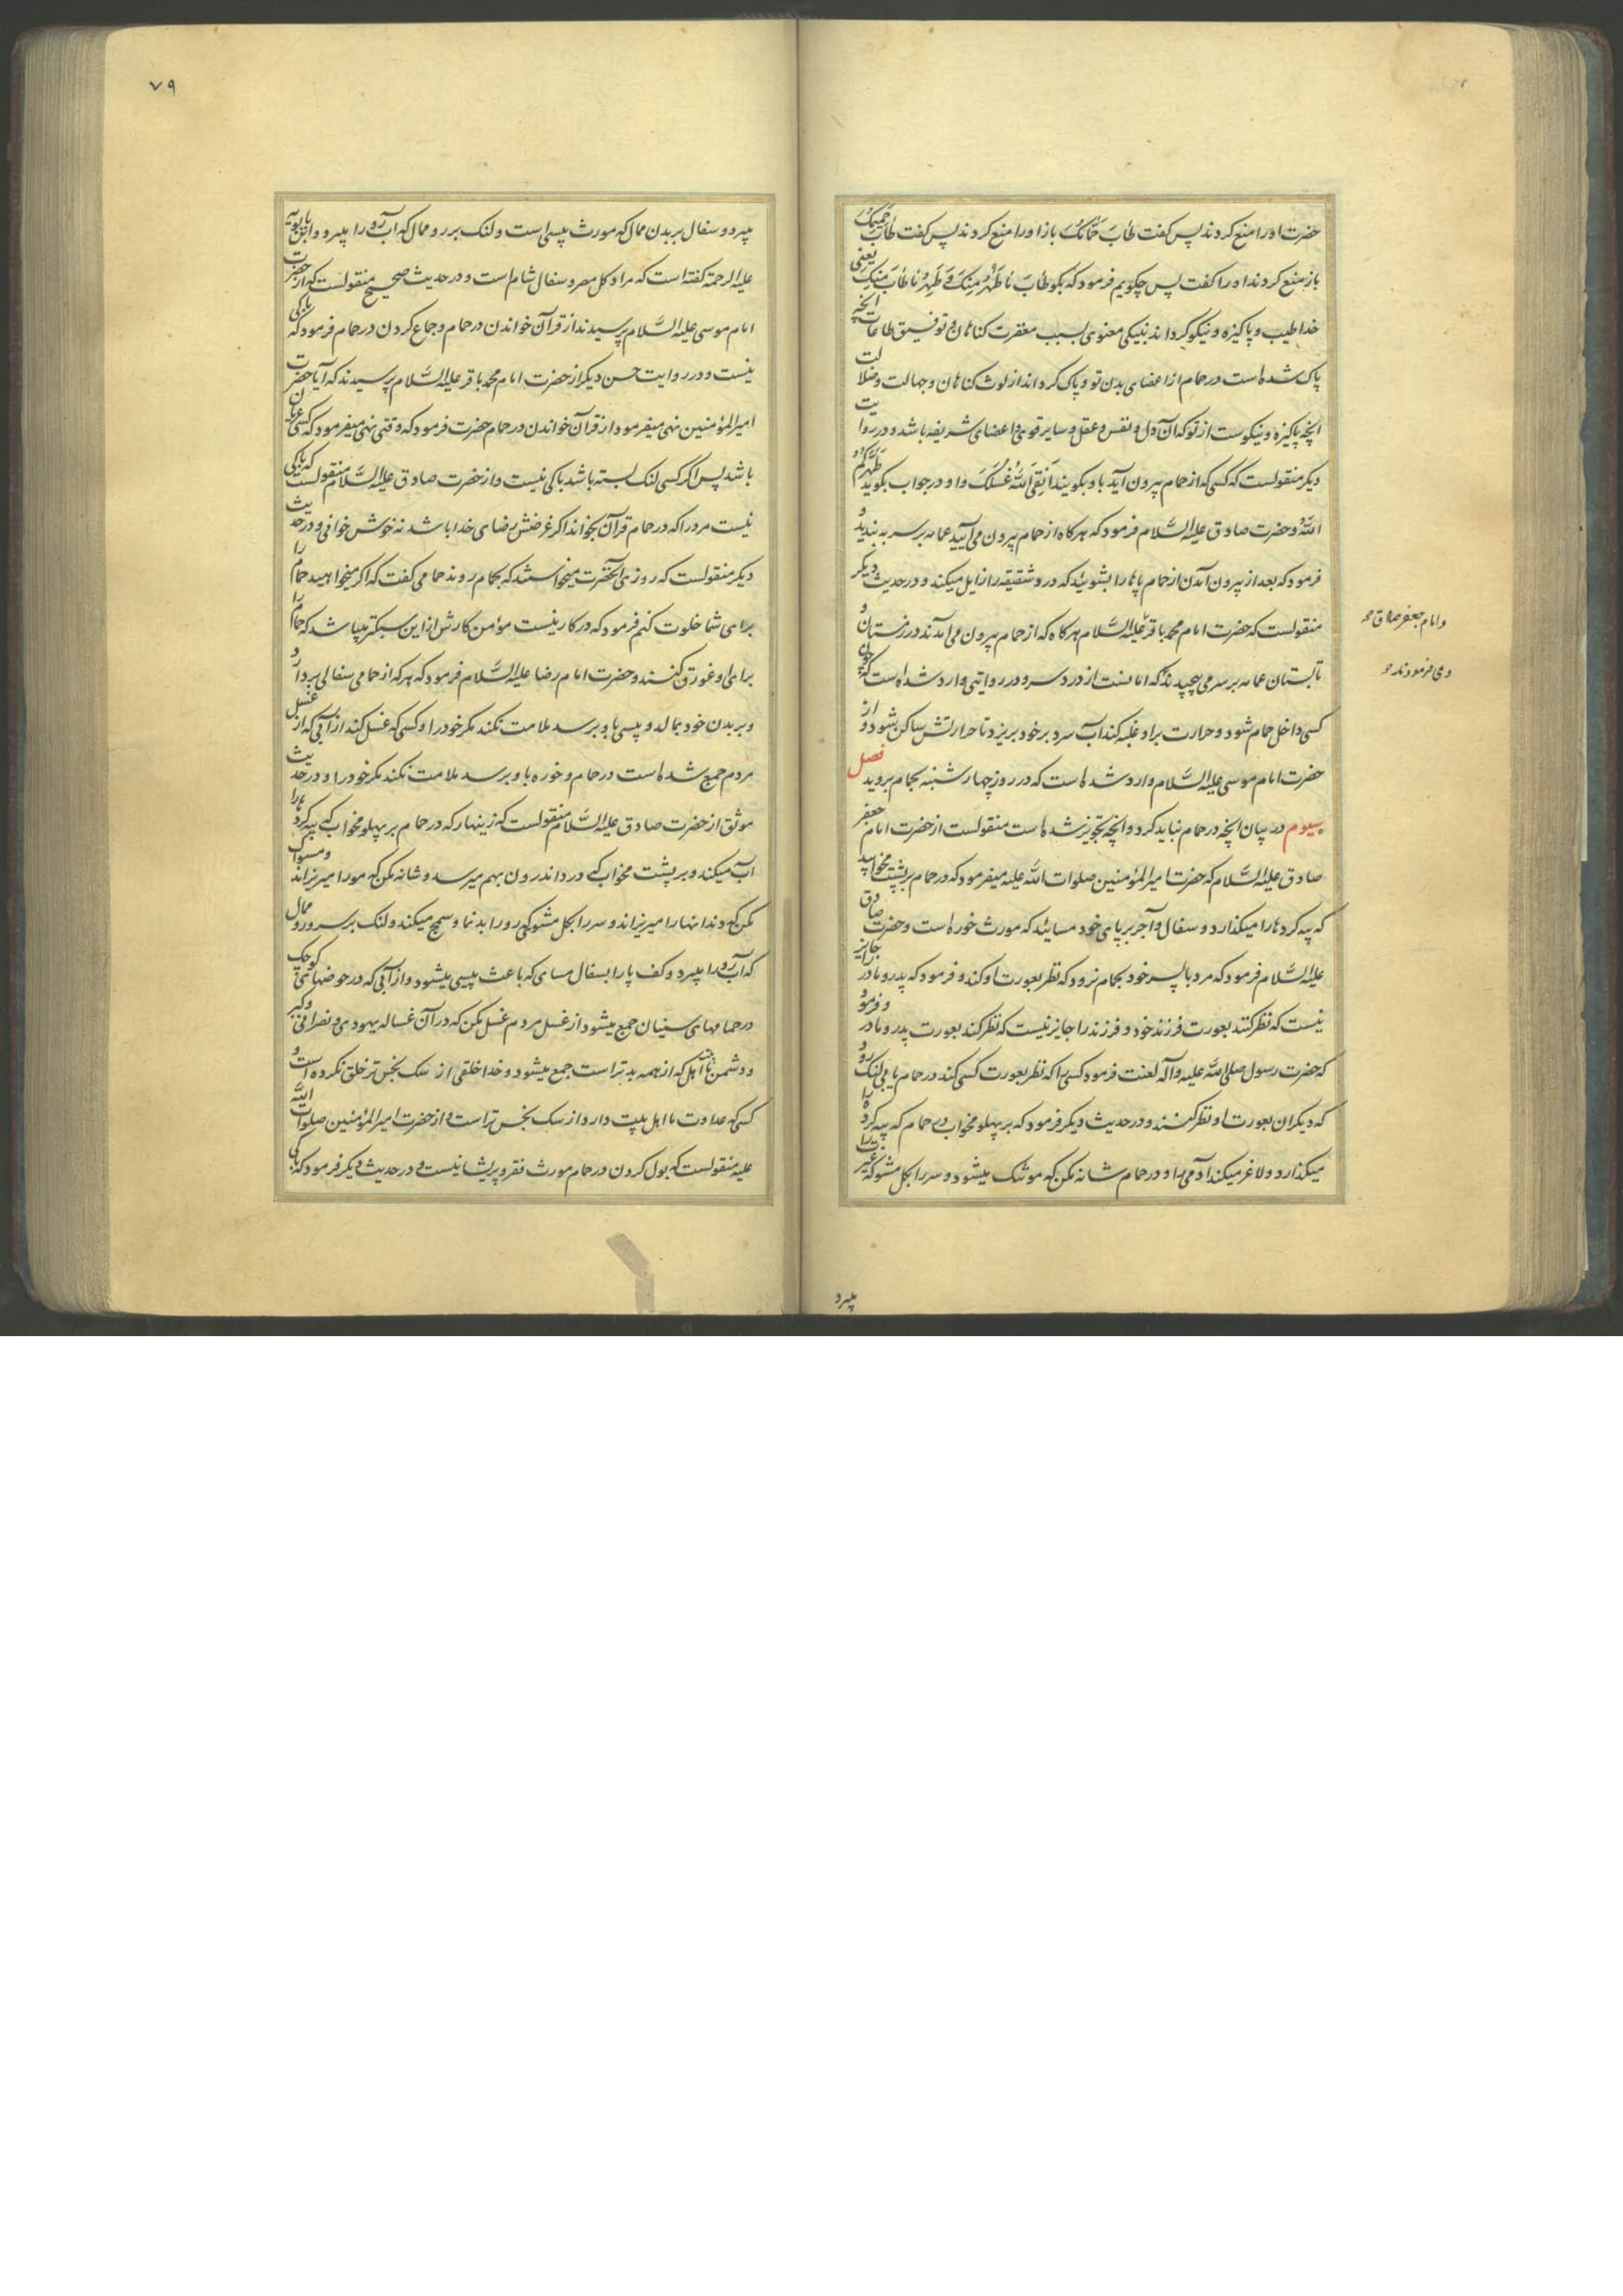 حضرت او را منع کردند پس کفت طٰابَ حَمّامُکَ باز او را منع کردند پس کفت طٰابَ حَمیمُکَ
باز منع کردند او را کفت پس چکویم فرمود که بکو طٰابَ مٰا طَهُرَ مِنْکَ وَ طَهُرَ مٰا طٰابَ مِنْکَ یعنی
خدا طیب و پاکیزه و نیکو کرداند بنیکی معنوی بسبب مغفرت کناهان و توفیق طاعات آنچه
پاک شده است در حمام از اعضای بدن تو و پاک کرداند از لوث کناهان و جهالت و ضلالت
آنچه پاکیزه و نیکوست از تو که آن دل و نفس و عقل و سایر قوی و اعضای شریفه باشد و در روایت
دیکر منقولست که کسی که از حمام بیرون آید باو بکویند اَنْقَی اللّٰهُ غُسْلَکَ و او در جواب بکوید طَهَّرَکُمُ
اللّٰهُ و حضرت صادق علیه السَّلام فرمود که هر کاه از حمام بیرون می آیید عمامه بر سر به بندید و
فرمود که بعد از بیرون آمدن از حمام پاها را بشوئید که درد شقیقه را زایل میکند و در حدیث دیکر
منقولست که حضرت امام محمد باقر علیه السَّلام هر کاه که از حمام بیرون می آمدند در زمستان و
و امام جعفر صادق
تابستان عمامه بر سر می پیچیدند که امانست از درد سر و در روایتی وارد شده است که چون
و می فرمودند
کسی داخل حمام شود و حرارت بر او غلبه کند آب سرد بر خود بریزد تا حرارتش ساکن شود و از
حضرت امام موسی علیه السَّلام وارد شده است که در روز چهارشنبه بحمام بروید فصل
سیوم در بیان آنچه در حمام نباید کرد و آنچه تجویز شده است منقولست از حضرت امام جعفر
صادق علیه السَّلام که حضرت امیر المؤمنین صلوات اللّٰه علیه میفرمود که در حمام بر پشت مخوابید
که پیه کرده ها را میکذارد و سفال و آجر بر پای خود مسائید که مورث خوره است و حضرت صادق
علیه السَّلام فرمود که مرد با پسر خود بحمام نرود که نظر بعورت او کند و فرمود که پدر و مادر را جایز
نیست که نظر کنند بعورت فرزند خود و فرزند را جایز نیست که نظر کند بعورت پدر و مادر و فرمود
که حضرت رسول صلی اللّٰه علیه و آله لعنت فرمود کسی را که نظر بعورت کسی کند در حمام یا بی لنک رود
که دیکران بعورت او نظر کنند و در حدیث دیکر فرمود که بر پهلو مخواب در حمام که پیه کرده را
میکذارد و لاغر میکند آدمی را و در حمام شانه مکن که مو تنک میشود و سر را بکل مشو که غیرت را
میبرد
۷۹
میبرد و سفال بر بدن ممال که مورث پیسی است و لنک بر رو ممال که آب رو را میبرد و ابن بابویه
علیه الرحمة کفته است که مراد کل مصر و سفال شام است و در حدیث صحیح منقولست که از حضرت
امام موسی علیه السَّلام پرسیدند از قرآن خواندن در حمام و جماع کردن در حمام فرمود که باکی
نیست و در روایت حسن دیکر از حضرت امام محمد باقر علیه السَّلام پرسیدند که آیا حضرت
امیر المؤمنین نهی میفرمود از قرآن خواندن در حمام حضرت فرمود که وقتی نهی میفرمود که کسی عریان
باشد پس اکر کسی لنک بسته باشد باکی نیست و از حضرت صادق علیه السَّلام منقولست که باکی
نیست مرد را که در حمام قرآن بخواند اکر غرضش رضای خدا باشد نه خوش خوانی و در حدیث
دیکر منقولست که روزی آنحضرت میخواستند که بحمام روند حمامی کفت که اکر میخواهید حمام را
برای شما خلوت کنم فرمود که در کار نیست مؤمن کارش از این سبکتر میباشد که حمام را
برای او غورق کنند و حضرت امام رضا علیه السَّلام فرمود که هر که از حمامی سفالی بردارد
و بر بدن خود بمالد و پیسی باو برسد ملامت نکند مکر خود را و کسی که غسل کند از آبی که از غسل
مردم جمع شده است در حمام و خوره باو برسد ملامت نکند مکر خود را و در حدیث
موثق از حضرت صادق علیه السَّلام منقولست که زینهار که در حمام بر پهلو مخواب که پیه کرده را
آب میکند و بر پشت مخواب که درد اندرون بهم میرسد و شانه مکن که مو را میریزاند و مسواک
مکن که دندانها را میریزاند و سر را بکل مشو که رو را بدنما و سمج میکند و لنک بر سر و رو ممال
که آب رو را میبرد و کف پا را بسفال مسای که باعث پیسی میشود و از آبی که در حوضهای کوچک
در حمامهای سنیان جمع میشود از غسل مردم غسل مکن که در آن غساله یهودی و نصرانی و کبر
و دشمن ما اهل بیت که از همه بدتر است جمع میشود و خدا خلقی از سک نجس تر خلق نکرده است و
کسی که عداوت ما اهل بیت دارد از سک نجس تر است و از حضرت امیر المؤمنین صلوات اللّٰه
علیه منقولست که بول کردن در حمام مورث فقر و پریشانیست و در حدیث دیکر فرمود که باکی